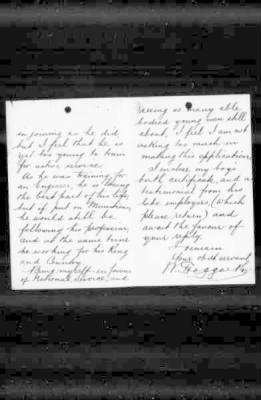 in joining as he did,
but I feel that he is
yet too young to train
for active service.
As he was training for
an Engineer, he is losing
the best part of his life,
but if put on Munitions,
he would still be
following his profession,
and at the same time
be working for his King
and Country.
Being myself in favour
of National Service, and
seeing so many able
bodied young men still
about, I feel I am not
asking too much in
making this application.
I enclose my boys
certificate, and a
testimonial from his
late employers, (which
please return) and
await the favour of
your reply.
I remain
Your obdt servant